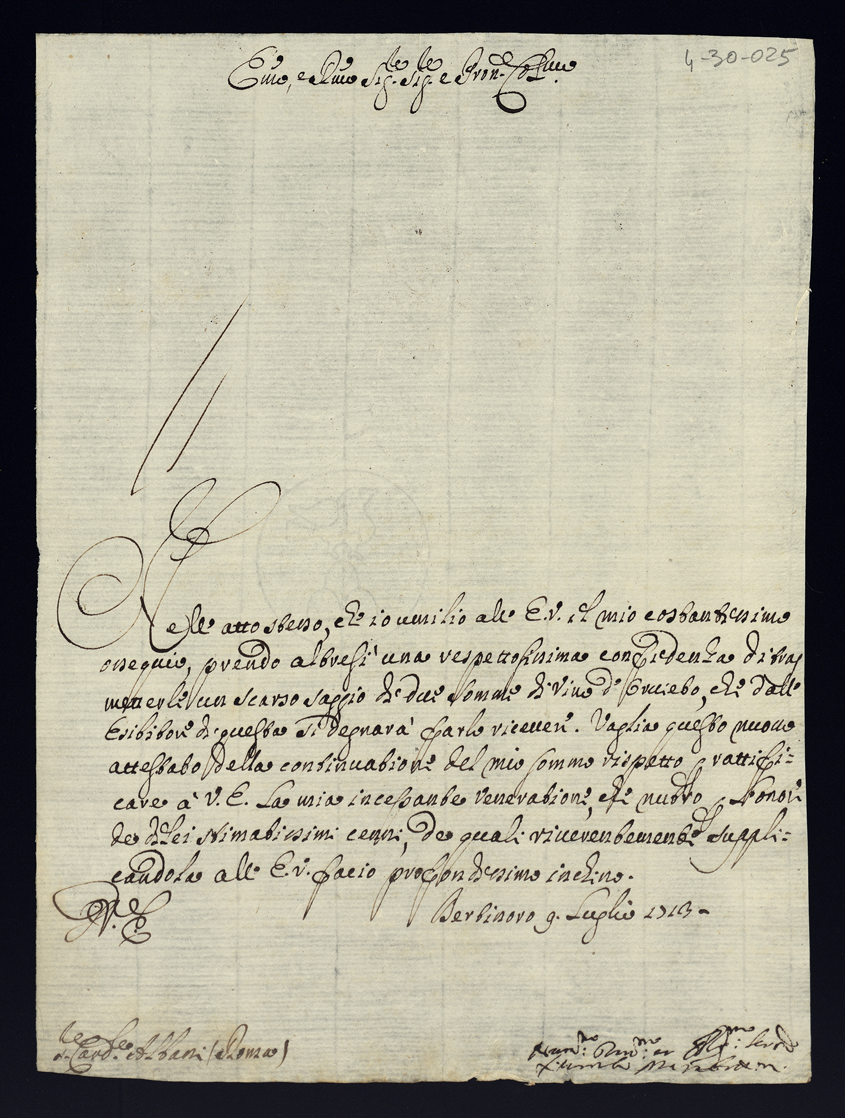 4-30-025
Emo, e Rmo Sig.re Sig.re e Pron.e Colmo
Nell' atto stesso, che io umilio all' E.V. il mio costantissimo
ossequio, prendo altresi' una rispettosissima confidenza di tras
metterle un scarso saggio di due some di vino d'
Esibitore di questa si degnarà farlo ricevere. Vaglia questo nuovo
attestato della continuatione del mio sommo rispetto ratifi=
care à V. E. la mia incessante veneratione, che nutro
de di Lei stimatissimi cenni, de quali riverentemente suppli=
candola all' E.V. facio profondissimo inchino.
Di V. E.
Bertinoro 9. Luglio 1713
S.r Card.le Albani (Roma)